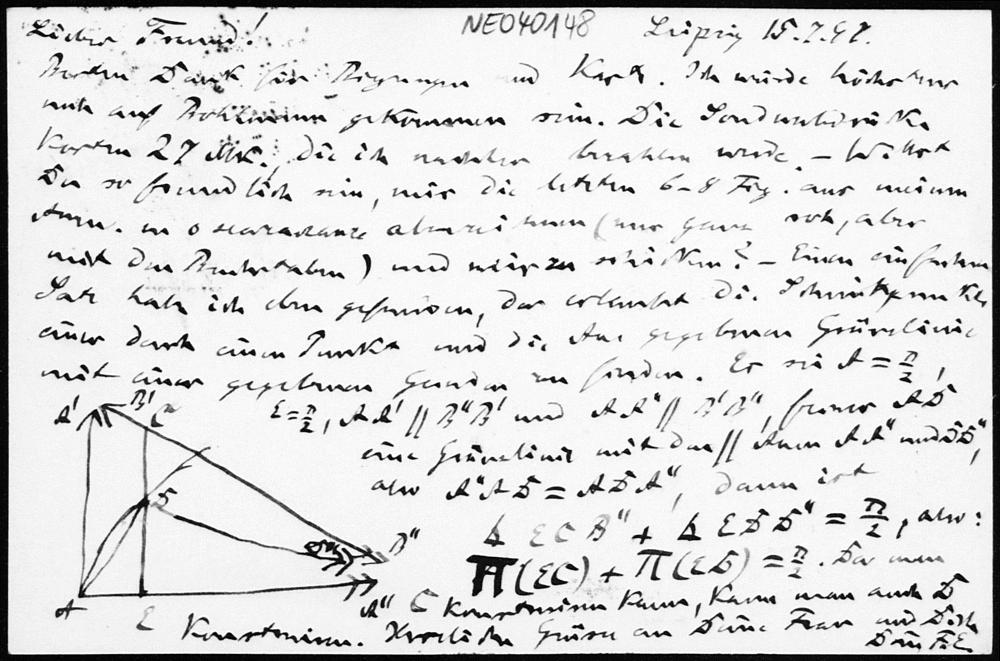 NE040148
Lieber Freund! Leipzig 15.7.42.
Besten Dank für und Karte. Ich würde höchstens
mich auf gekommen sein. Die Sonderabdrücke
kosten 27 Mk., die ich nachher bezahlen werde. – Willst
Du so freundlich sein, mir die letzten 6–8 Fig. aus meinem
(nur ganz roh, aber
mit den Buchstaben) und mir zu schicken? – Einen einfachen
Satz hab ich eben gefunden, der erlaubt die Schnittpunkte
einer durch einen Punkt und die Axe gegebenen Grenzlinie
mit einer gegebenen Geraden zu finden. Es sei A = π/2,
E = π/2, AA' // B''B' und AA'' // B'B'', ferner AD
eine Grenzlinie mit den // Axen AA'' und DD'',
also A''AD = ADD'', dann ist
∡ ECB'' + ∡ EDD'' = π/2, also:
Π(EC) + Π(ED) = π/2. Da man
C konstruieren kann, kann man auch D
konstruieren. Herzliche Grüsse an Deine Frau und Dich
Dein F.E.
A' B' C
D
D'' B''
A E A''